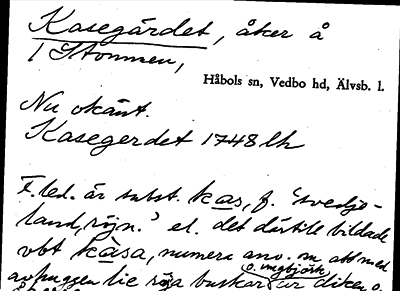 Kasegärdet, åker å
1 Stommen,
Håbols sn, Vedbo hd, Älvsb. l.
Nu okänt.
Kasegerdet 1748 lh
F. led. är subst. kas, f. 'svedje-
land, röjn.' el. det därtill bildade
vbt kàsa, numera anv. om att med
o. ungbjörk
av huggen lie röja buskar ur diken o.